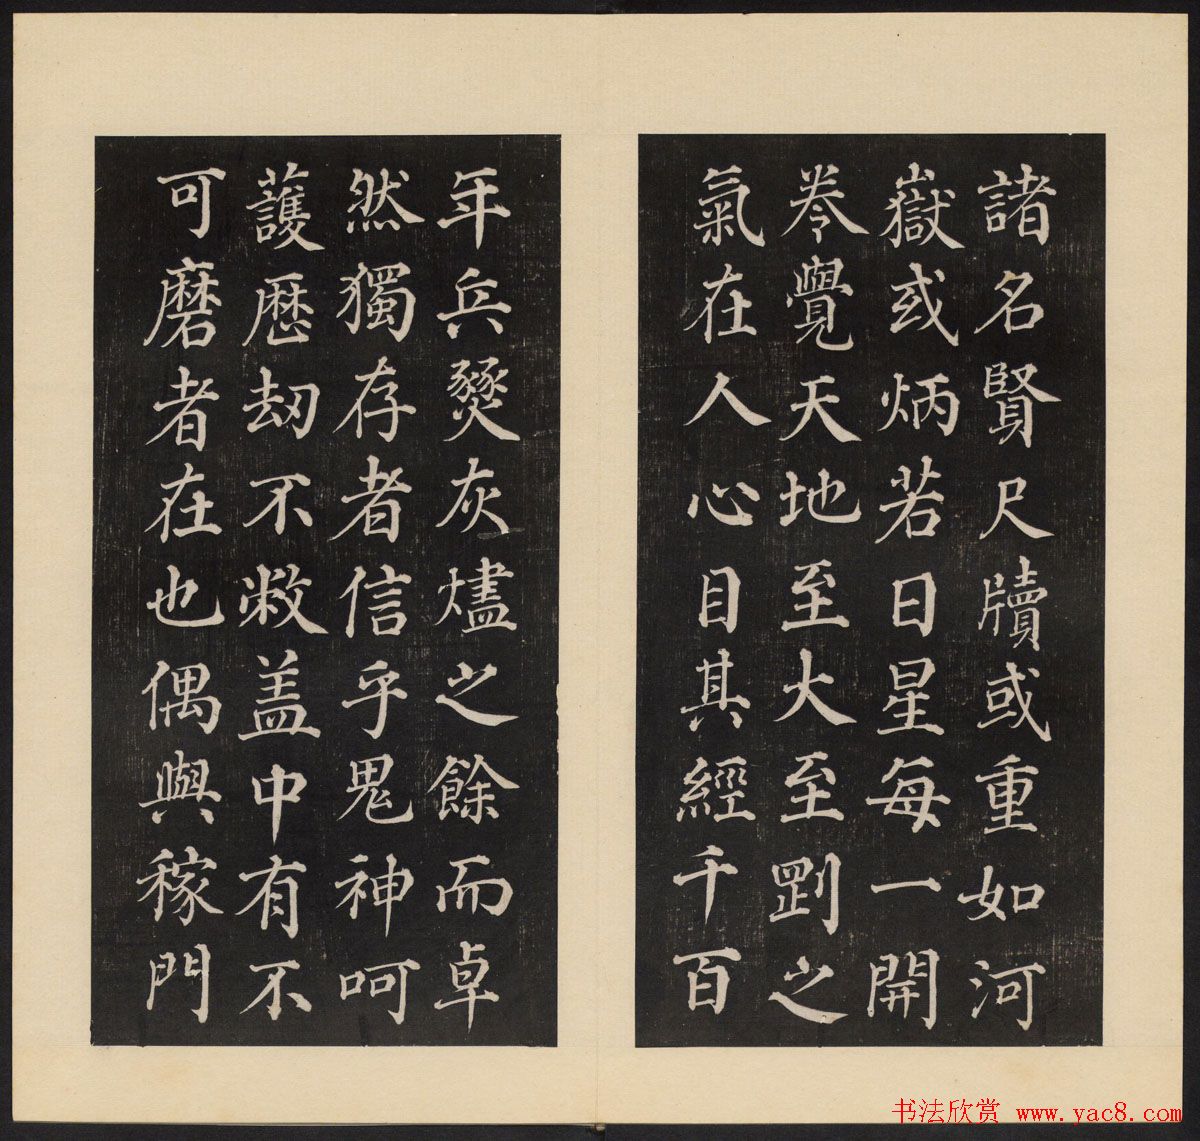 諸名賢尺牘或重如河
嶽或炳若日星每一開
卷覺天地至大至剛之
氣在人心目其經千百
年兵燹灰燼之餘而卓
然獨存者信乎鬼神呵
護歷劫不敝蓋中有不
可磨者在也偶與稼門
书法欣赏 www.yac8.com